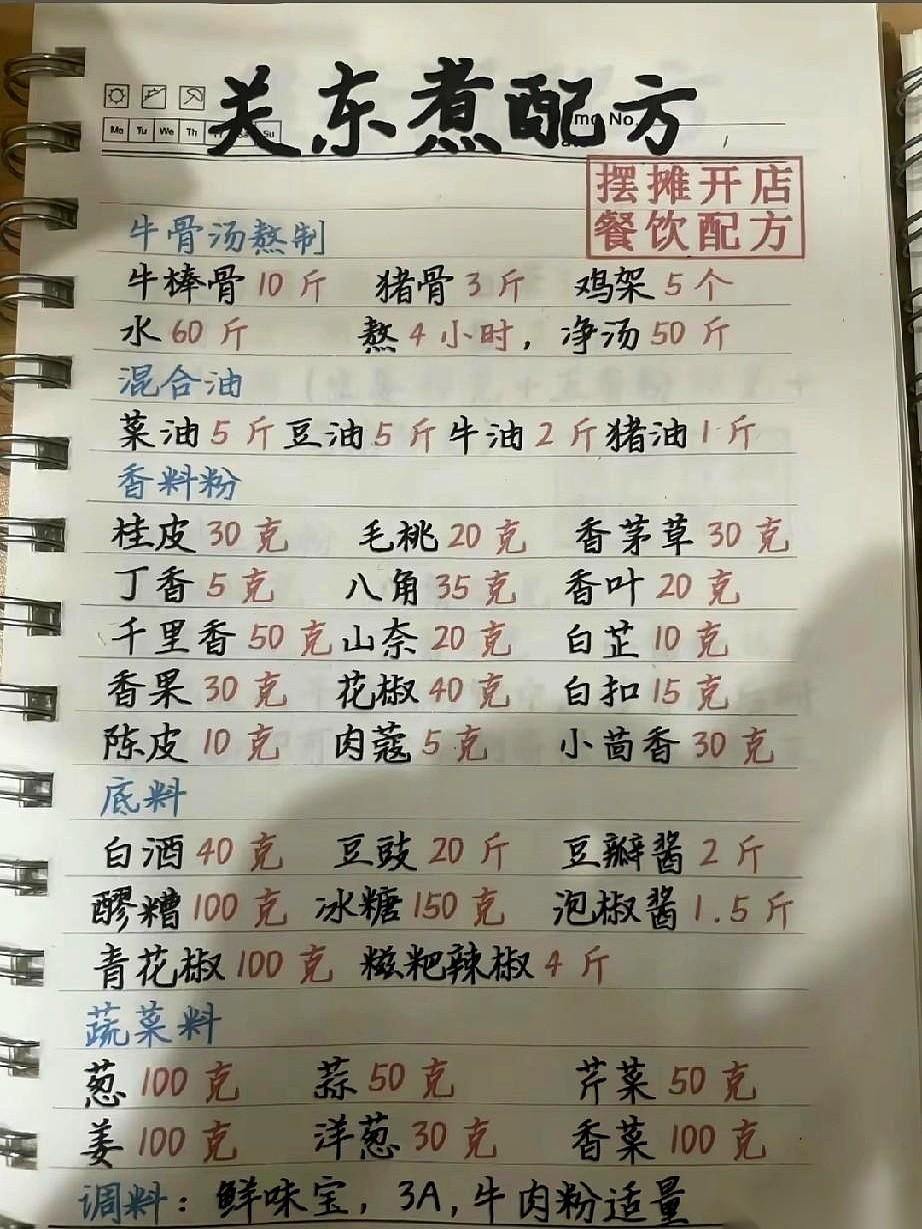 关东煮配方
mo No.
Mo Tu We Th Su
摆摊开店
餐饮配方
牛骨汤熬制
牛棒骨10斤 猪骨3斤 鸡架5个
水60斤 熬4小时，净汤50斤
混合油
菜油5斤 豆油5斤 牛油2斤 猪油1斤
香料粉
桂皮30克 毛桃20克 香茅草30克
丁香5克 八角35克 香叶20克
千里香50克 山奈20克 白芷10克
香果30克 花椒40克 白扣15克
陈皮10克 肉蔻5克 小茴香30克
底料
白酒40克 豆豉20斤 豆瓣酱2斤
醪糟100克 冰糖150克 泡椒酱1.5斤
青花椒100克 糍粑辣椒4斤
蔬菜料
葱100克 蒜50克 芹菜50克
姜100克 洋葱30克 香菜100克
调料：鲜味宝，3A，牛肉粉适量